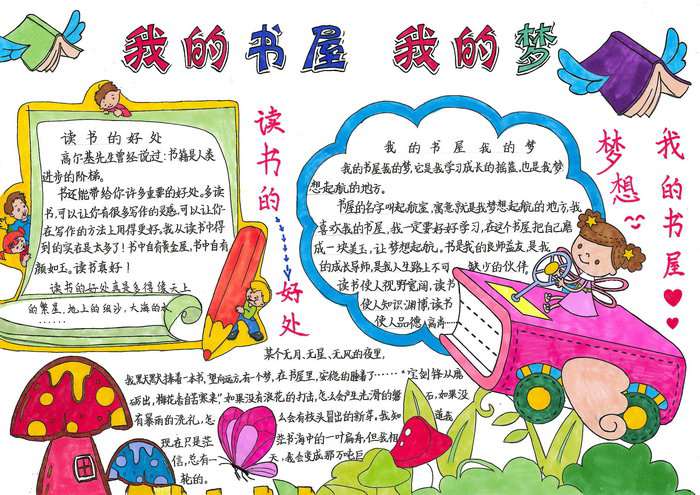 我的书屋 我的梦
读书的好处
高尔基先生曾经说过:书籍是人类
进步的阶梯。
书还能带给你许多重要的好处。多读
书,可以让你有很多写作的灵感。可以让你
在写作的方法上用得更好。我从读书中得
到的实在是太多了!书中自有黄金屋,书中自有
颜如玉。读书真好!
读书的好处真是多得像天上
的繁星、地上的细沙,大海的水
……
读书的
好处
我的书屋我的梦
我的书屋我的梦,它是我学习成长的摇篮,也是我梦
想起航的地方。
书屋的名字叫起航室,寓意就是我梦想起航的地方,我
喜欢我的书屋,我一定要好好学习,在这个书屋把自己磨
成一块美玉,让梦想起航。书是我的良师益友,是我
的成长导师,是我人生路上不可 缺少的伙伴。
读书使人视野宽阔,读书
使人知识渊博,读书
使人品德高尚……
梦想
我的书屋
某个无月、无星、无风的夜里,
我默默捧着一本书,望向远方,有个梦,在书屋里,安稳的睡着了……“宝剑锋从磨
砺出,梅花香自苦寒来”如果没有浪花的打击,怎么会产生光滑的磐 石,如果没
有暴雨的洗礼,怎 么会有枝头冒出的新芽。我知 道我
现在只是茫 茫书海中的一叶扁舟,但我相
信,总有一 天,我会变成那万吨巨
轮的。